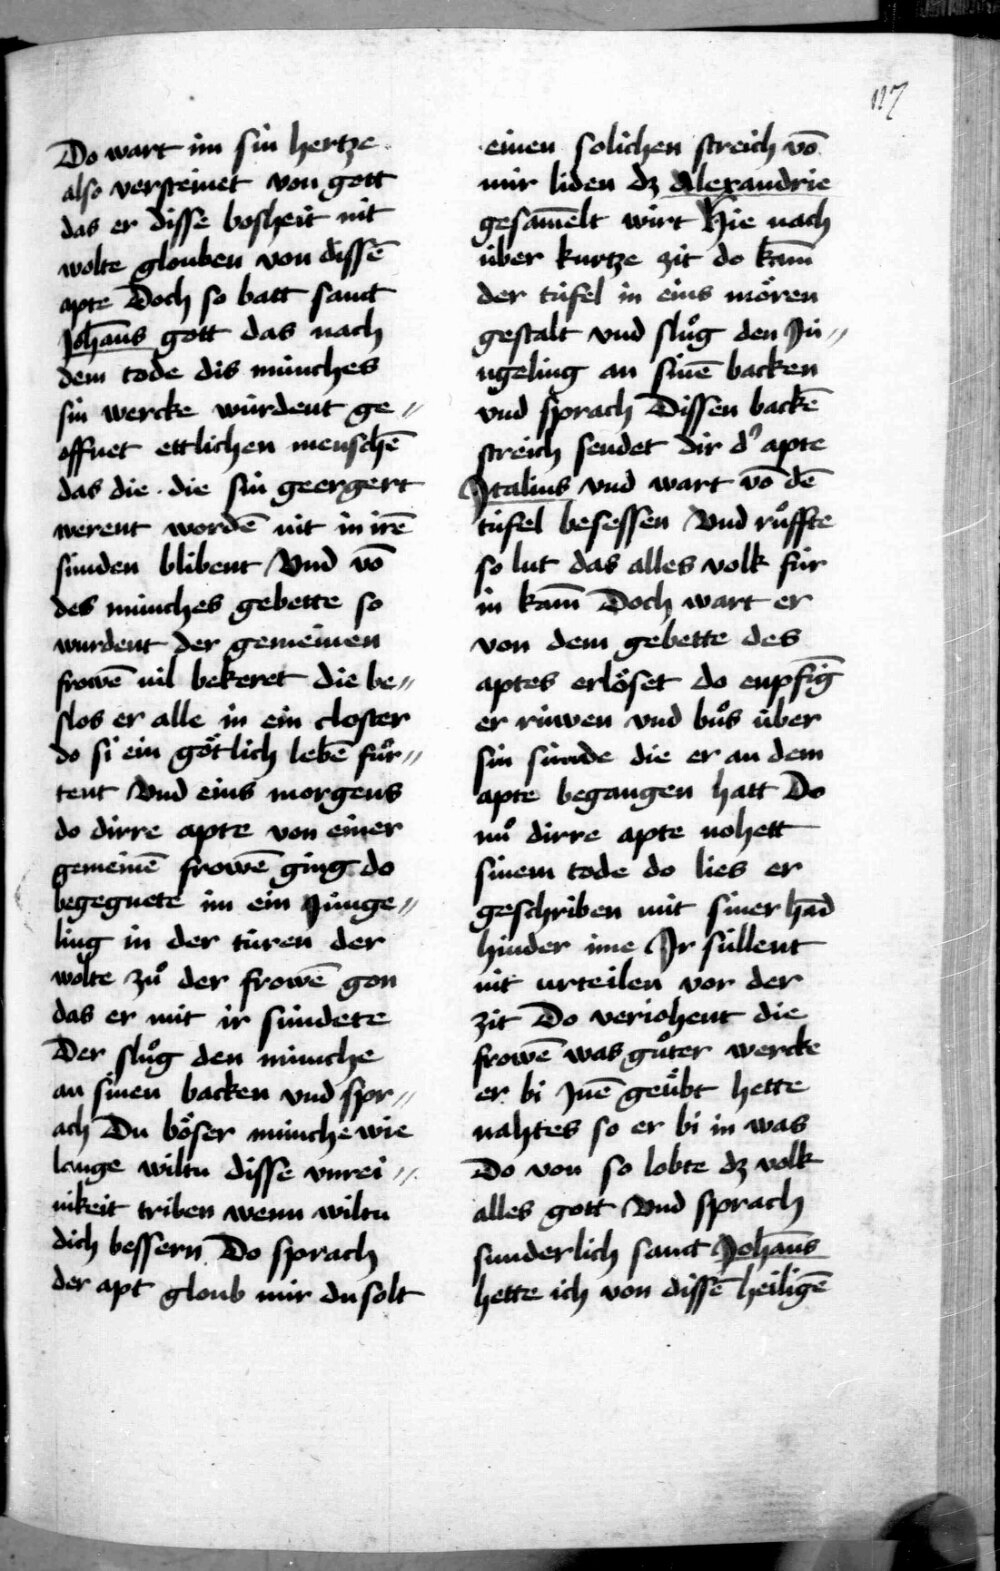 117
Do wart im sin hertze
also versteinet von gott
das er disse bosheit nit
wolte glouben von dissē
apte Doch so batt sant
Johā̄ns gott das nach
dem tode dis münches
sin wercke würdent ge〃
offnet ettlichen menschē
das die · die sin geergert
werent wordē nit in irē
sünden blibent Vnd vō
des münches gebette so
wurdent der gemeinen
frowē vil bekeret die be〃
slos er alle in ein closter
do si ein götlich lebē fuͦr〃
tent Vnd eins morgens
do dirre apte von einer
gemeinē frowē ging do
begegnete im ein Jünge〃
ling in der türen der
wolte zuͦ der frowē gon
das er mit ir sündete
Der sluͦg den münche
an sinen backen vnd spr〃
ach Du böser münche wie
lange wiltu disse vnrei〃
nikeit triben wenn wiltu
dich bessern Do sprach
der apt gloub mir du solt
einen solichen streich vō
mir liden dz Alexandrie
gesam̄elt wirt Hie nach
über kurtze zit do kam̄
der tüfel in eins mören
gestalt vnd sluͦg den Jü〃
ngeling an sinē backen
vnd sprach Dissen backē
streich sendet dir d᾽ apte
Italius vnd wart vō dē
tüfel besessen Vnd ruͦffte
so lut das alles volk für
in kam̄ Doch wart er
von dem gebette des
aptes erlöset do enpfīg
er rüwen vnd buͦs über
sin sünde die er an dem
apte begangen hatt Do
nuͦ dirre apte nohett
sinem tode do lies er
geschriben mit siner hād
hinder ime Ir süllent
nit urteilen vor der
zit Do veriohent die
frowē was guͦter wercke
er bi Jnē geübt hette
nahtes so er bi in was
Do von so lobte dz volk
alles gott Vnd sprach
sunderlich sant Johāns
hette ich von dissē heiligē